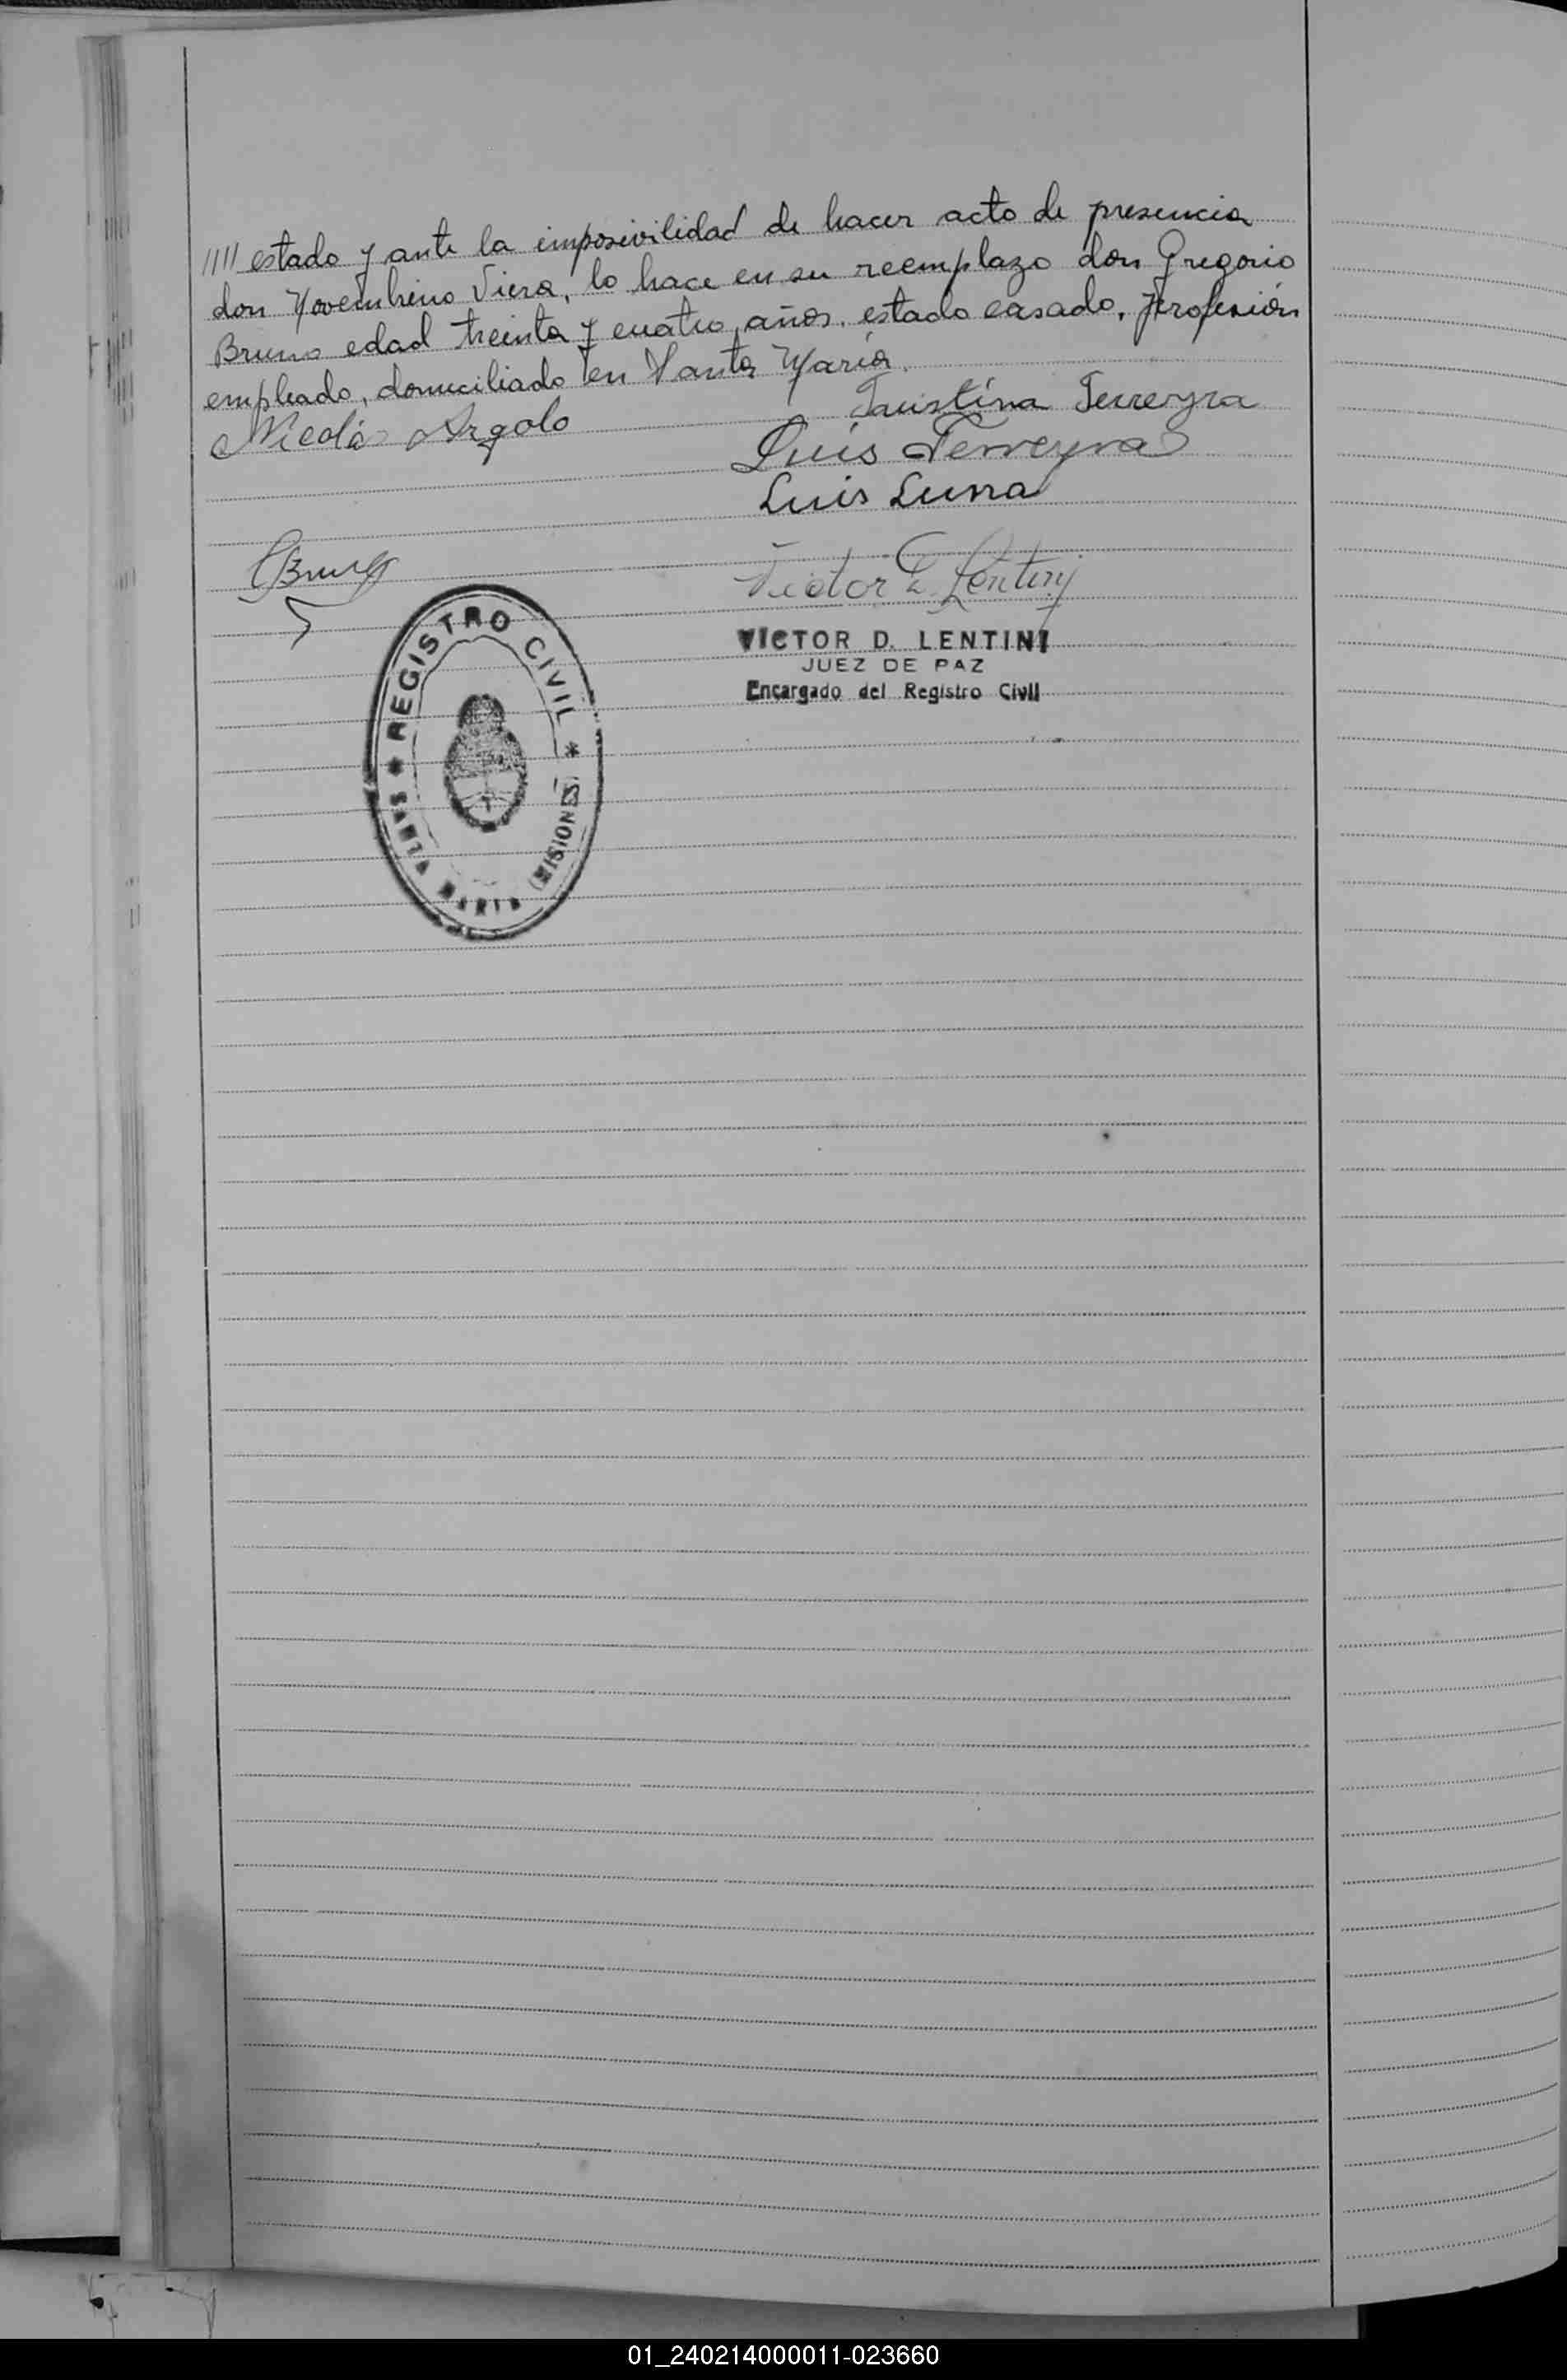 ///// estado y ante la imposivilidad de hacer acto de presencia
don Novembrino Viera, lo hace en su reemplazo don Gregorio
Bruno edad treinta y cuatro años, estado casado, profesión
empleado, domiciliado en Santa María.
Nicolás Argolo
Faustina Ferreyra
Luis Ferreyra
Luis Luna
GBruno
Victor D. Lentini
VICTOR D. LENTINI
JUEZ DE PAZ
Encargado del Registro Civil
* REGISTRO CIVIL *
SANTA MARIA (MISIONES)
01_240214000011-023660